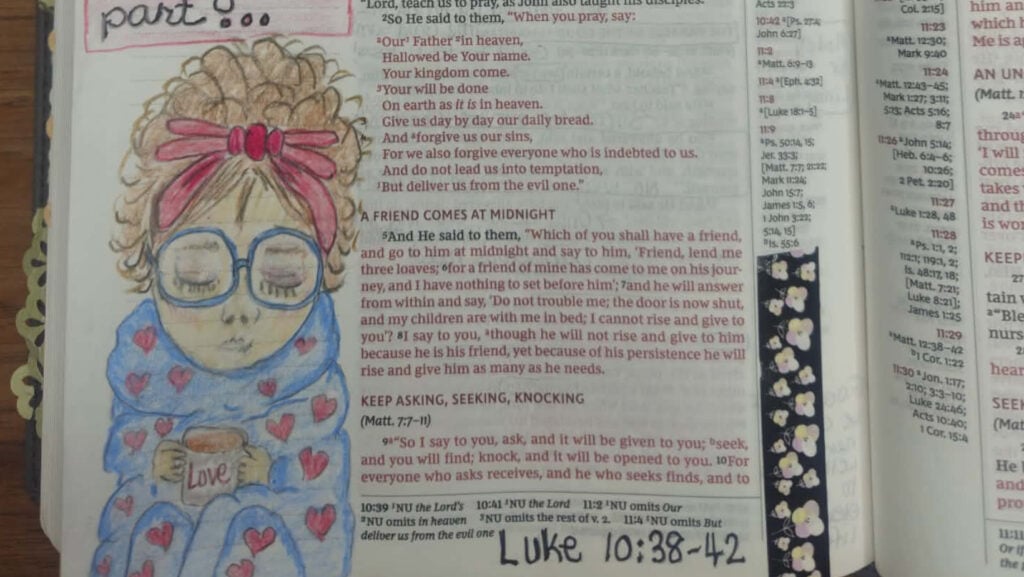 part?...
"Lord, teach us to pray, as John also taught his disciples."
²So He said to them, "When you pray, say:
²Our¹ Father ²in heaven,
Hallowed be Your name.
Your kingdom come.
³Your will be done
On earth as it is in heaven.
Give us day by day our daily bread.
And ᵃforgive us our sins,
For we also forgive everyone who is indebted to us.
And do not lead us into temptation,
¹But deliver us from the evil one."
A FRIEND COMES AT MIDNIGHT
⁵And He said to them, "Which of you shall have a friend,
and go to him at midnight and say to him, 'Friend, lend me
three loaves; ⁶for a friend of mine has come to me on his jour-
ney, and I have nothing to set before him'; ⁷and he will answer
from within and say, 'Do not trouble me; the door is now shut,
and my children are with me in bed; I cannot rise and give to
you'? ⁸I say to you, ᵃthough he will not rise and give to him
because he is his friend, yet because of his persistence he will
rise and give him as many as he needs.
KEEP ASKING, SEEKING, KNOCKING
(Matt. 7:7–11)
⁹ᵃ"So I say to you, ask, and it will be given to you; ᵇseek,
and you will find; knock, and it will be opened to you. ¹⁰For
everyone who asks receives, and he who seeks finds, and to
10:39 ¹NU the Lord's 10:41 ¹NU the Lord 11:2 ¹NU omits Our
²NU omits in heaven ³NU omits the rest of v. 2. 11:4 ¹NU omits But
deliver us from the evil one
Luke 10:38-42
Love
Acts 22:3
10:42 ᵃ[Ps. 27:4;
John 6:27]
11:2
ᵃMatt. 6:9–13
11:4 ᵃ[Eph. 4:32]
11:8
ᵃ[Luke 18:1–5]
11:9
ᵃPs. 50:14, 15;
Jer. 33:3;
[Matt. 7:7; 21:22;
Mark 11:24;
John 15:7;
James 1:5, 6;
1 John 3:22;
5:14, 15]
ᵇIs. 55:6
Col. 2:15]
11:23
ᵃMatt. 12:30;
Mark 9:40
11:24
ᵃMatt. 12:43–45;
Mark 1:27; 3:11;
5:13; Acts 5:16;
8:7
11:26 ᵃJohn 5:14;
[Heb. 6:4–6;
10:26;
2 Pet. 2:20]
11:27
ᵃLuke 1:28, 48
11:28
ᵃPs. 1:1, 2;
112:1; 119:1, 2;
Is. 48:17, 18;
[Matt. 7:21;
Luke 8:21];
James 1:25
11:29
ᵃMatt. 12:38–42
ᵇ1 Cor. 1:22
11:30 ᵃJon. 1:17;
2:10; 3:3–10;
Luke 24:46;
Acts 10:40;
1 Cor. 15:4
him an
which h
Me is a
AN UN
(Matt. 1
24ᵃ
throug
'I will
comes
takes
and th
is wor
KEEP
27
tain
ᵃ"Ble
nurs
hear
SEE
(Mat
He
and
pro
11:11
Or if
the